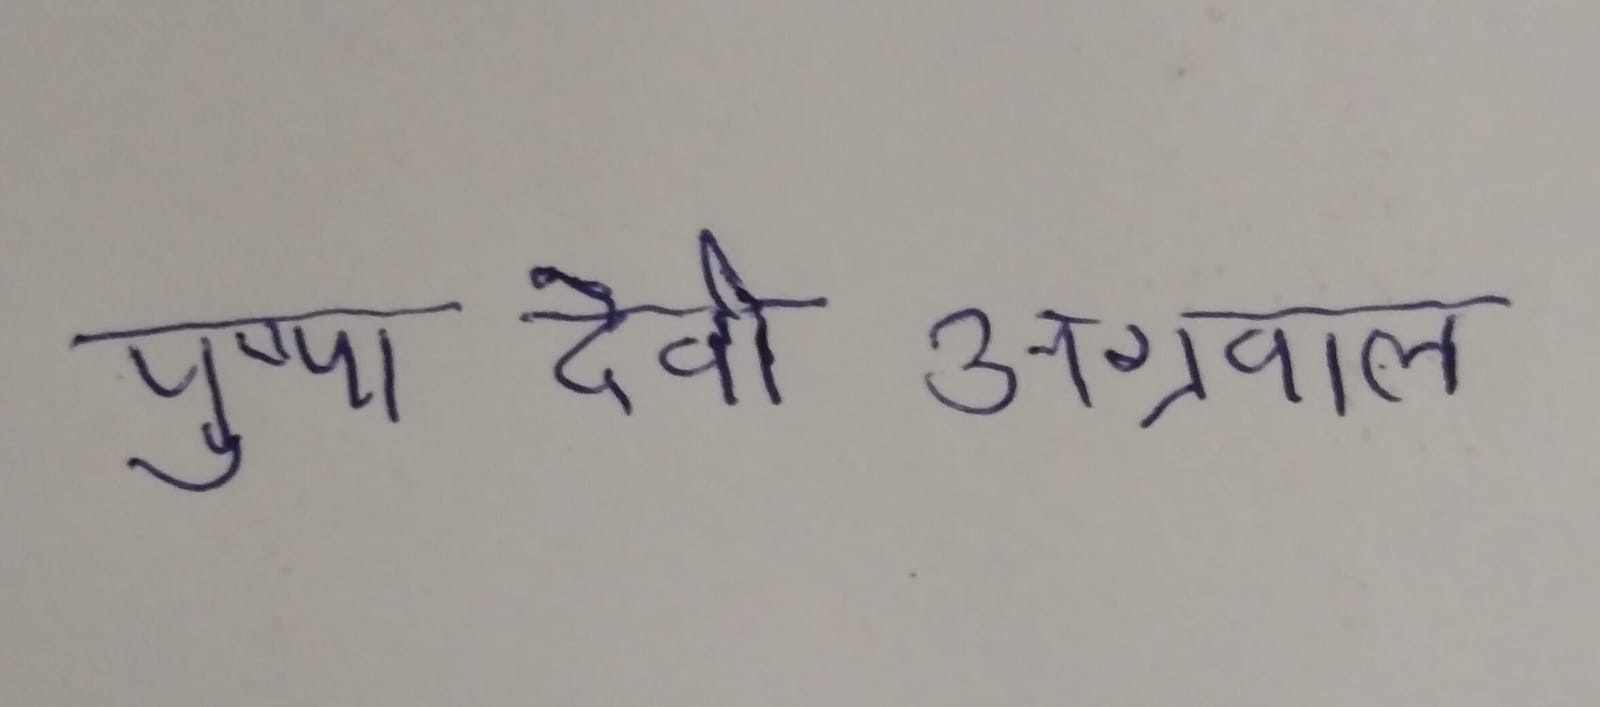 पुष्पा देवी अग्रवाल